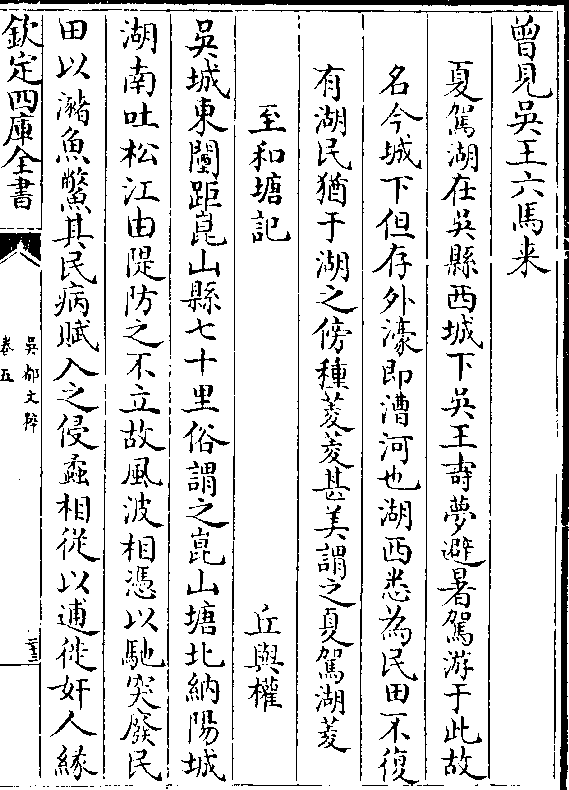 曾見吳王六馬来
夏駕湖在吳縣西城下吳王壽夢避暑駕游于此故
名今城下但存外濠即漕河也湖西悉為民田不復
有湖民猶于湖之傍種菱菱甚美謂之夏駕湖菱
至和塘記　　　　　　　丘與權
吳城東闉距崑山縣七十里俗謂之崑山塘北納陽城
湖南吐松江由隄防之不立故風波相憑以馳突廢民
田以瀦魚鱉其民病賦入之侵蟊相從以逋徙奸人緣
欽定四庫全書
吳都文粹
卷五
二十三